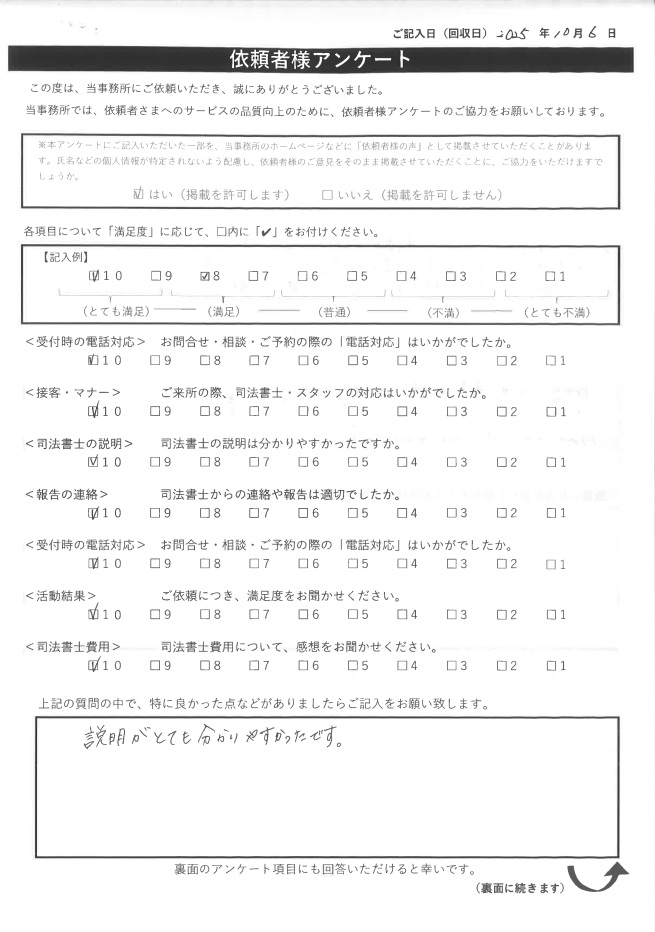 ご記入日（回収日）2025年10月6日
依頼者様アンケート
この度は、当事務所にご依頼いただき、誠にありがとうございました。
当事務所では、依頼者さまへのサービスの品質向上のために、依頼者様アンケートのご協力をお願いしております。
※本アンケートにご記入いただいた一部を、当事務所のホームページなどに「依頼者様の声」として掲載させていただくことがありま
す。氏名などの個人情報が特定されないよう配慮し、依頼者様のご意見をそのまま掲載させていただくことに、ご協力をいただけますで
しょうか。
☑はい（掲載を許可します） □いいえ（掲載を許可しません）
各項目について「満足度」に応じて、□内に「✔」をお付けください。
【記入例】
☑10 □9 ☑8 □7 □6 □5 □4 □3 □2 □1
（とても満足）（満足）（普通）（不満）（とても不満）
＜受付時の電話対応＞ お問合せ・相談・ご予約の際の「電話対応」はいかがでしたか。
☑10 □9 □8 □7 □6 □5 □4 □3 □2 □1
＜接客・マナー＞ ご来所の際、司法書士・スタッフの対応はいかがでしたか。
☑10 □9 □8 □7 □6 □5 □4 □3 □2 □1
＜司法書士の説明＞ 司法書士の説明は分かりやすかったですか。
☑10 □9 □8 □7 □6 □5 □4 □3 □2 □1
＜報告の連絡＞ 司法書士からの連絡や報告は適切でしたか。
☑10 □9 □8 □7 □6 □5 □4 □3 □2 □1
＜受付時の電話対応＞ お問合せ・相談・ご予約の際の「電話対応」はいかがでしたか。
☑10 □9 □8 □7 □6 □5 □4 □3 □2 □1
＜活動結果＞ ご依頼につき、満足度をお聞かせください。
☑10 □9 □8 □7 □6 □5 □4 □3 □2 □1
＜司法書士費用＞ 司法書士費用について、感想をお聞かせください。
☑10 □9 □8 □7 □6 □5 □4 □3 □2 □1
上記の質問の中で、特に良かった点などがありましたらご記入をお願い致します。
説明がとても分かりやすかったです。
裏面のアンケート項目にも回答いただけると幸いです。
（裏面に続きます）